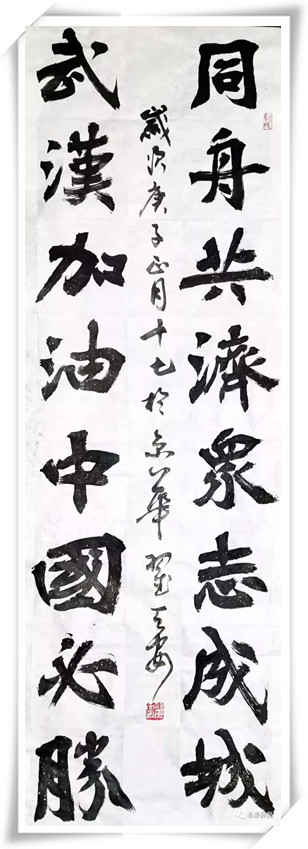 同舟共濟衆志成城
武漢加油中國必勝
歲次庚子正月十七於京華